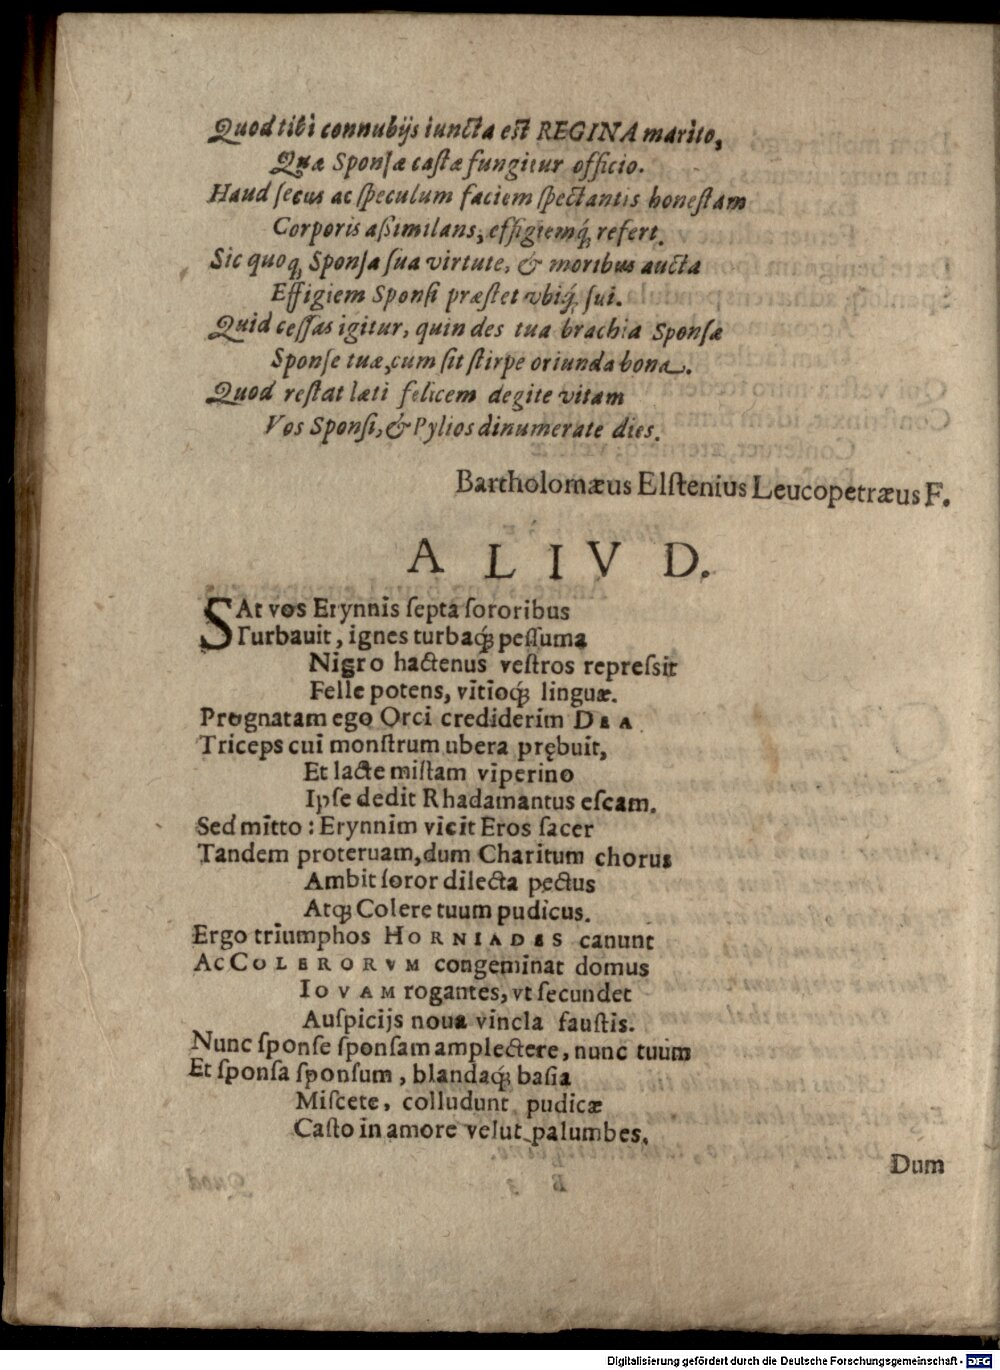 Quod tibi connubijs iuncta est REGINA marito,
Quæ Sponsæ castæ fungitur officio.
Haud secus ac speculum faciem spectantis honestam
Corporis aßimilans, effigiemq́; refert.
Sic quoq; Sponsa sua virtute, & moribus aucta
Effigiem Sponsi præstet vbiq́; sui.
Quid cessas igitur, quin des tua brachia Sponsæ
Sponse tuæ, cum sit stirpe oriunda bona.
Quod restat læti felicem degite vitam
Vos Sponsi, & Pylios dinumerate dies.
Bartholomæus Elstenius Leucopetræus F.
ALIVD.
SAt vos Erynnis septa sororibus
Turbauit, ignes turbaq́; pessuma
Nigro hactenus vestros repressit
Felle potens, vitioq́; linguæ.
Prognatam ego Orci crediderim DEA
Triceps cui monstrum ubera prębuit,
Et lacte mistam viperino
Ipse dedit Rhadamantus escam.
Sed mitto : Erynnim vicit Eros sacer
Tandem proteruam, dum Charitum chorus
Ambit soror dilecta pectus
Atq; Colere tuum pudicus.
Ergo triumphos HORNIADES canunt
Ac COLERORVM congeminat domus
IOVAM rogantes, vt secundet
Auspicijs noua vincla faustis.
Nunc sponse sponsam amplectere, nunc tuum
Et sponsa sponsum, blandaq́; basia
Miscete, colludunt pudicæ
Casto in amore velut palumbes.
Dum
Digitalisierung gefördert durch die Deutsche Forschungsgemeinschaft - DFG